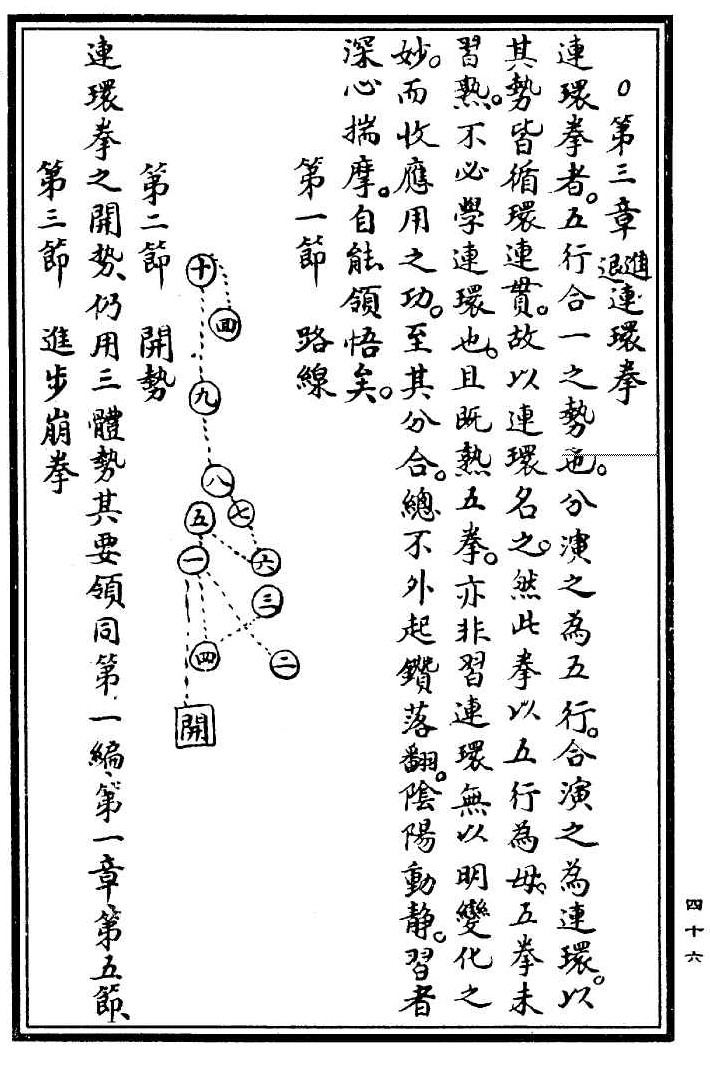 ○第三章 進退連環拳
連環拳者。五行合一之勢也。分演之為五行。合演之為連環。以
其勢皆循環連貫。故以連環名之。然此拳以五行為母。五拳未
習熟。不必學連環也。且既熟五拳。亦非習連環無以明變化之
妙。而收應用之功。至其分合。總不外起鑽落翻。陰陽動靜。習者
深心揣摩。自能領悟矣。
第一節 路線
十
回
九
八
七
五
六
一
三
四
二
開
第二節 開勢
連環拳之開勢、仍用三體勢其要領同第一編、第一章、第五節、
第三節 進步崩拳
四十六